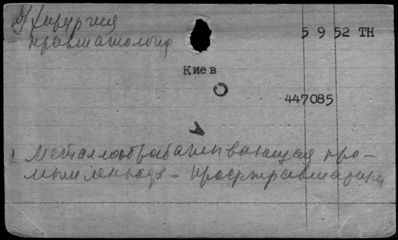 2) Хирургия
травматология
5 9 52 ТН
Киев
447085
1. Металлообрабатывающая про-
мышленность - Профтравматизм